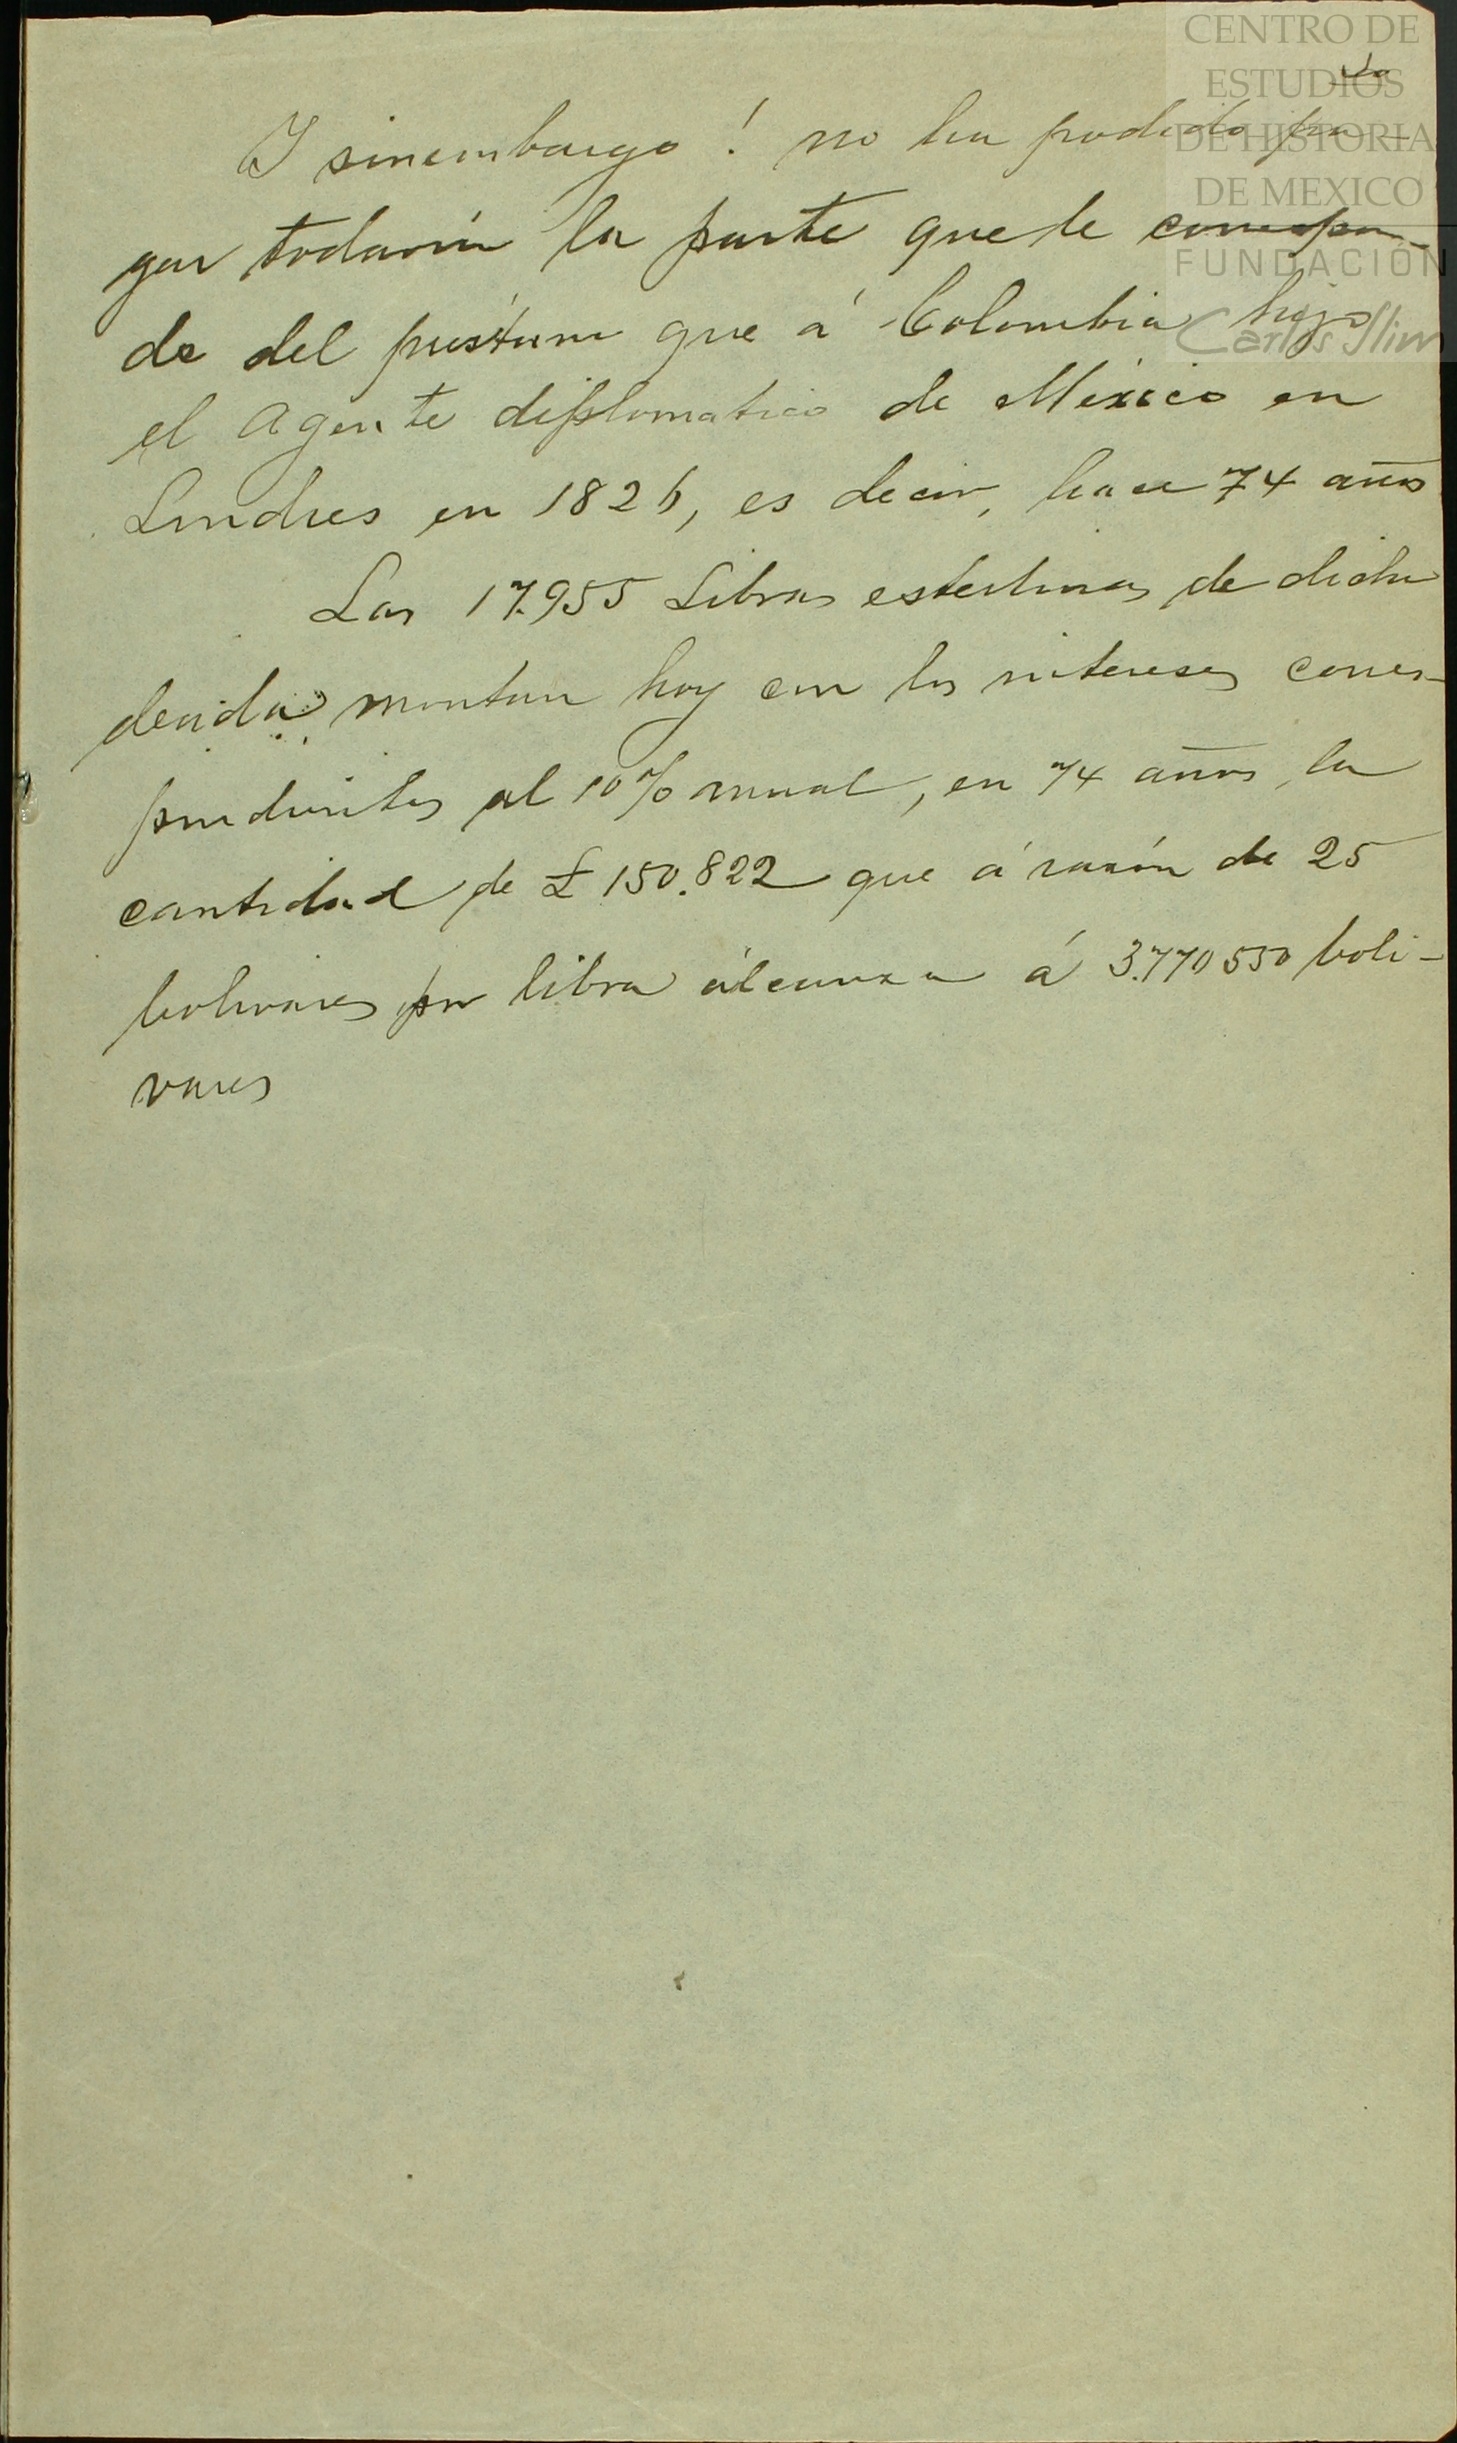 CENTRO DE
ESTUDIOS
DE HISTORIA
DE MEXICO
FUNDACIÓN
Carlos Slim
I sinembargo! no ha podido pa-
gar todavía la parte que le correspon-
de del préstamo que á Colombia hizo
el Agente diplomatico de México en
Londres en 1826, es decir, hace 74 años
Las 17.955 Libras esterlinas de dicha
deuda montan hoy con los intereses corres-
pondientes al 10% anual, en 74 años, la
cantidad de £ 150.822 que á razón de 25
bolivares por libra alcanza á 3.770550 boli-
vares